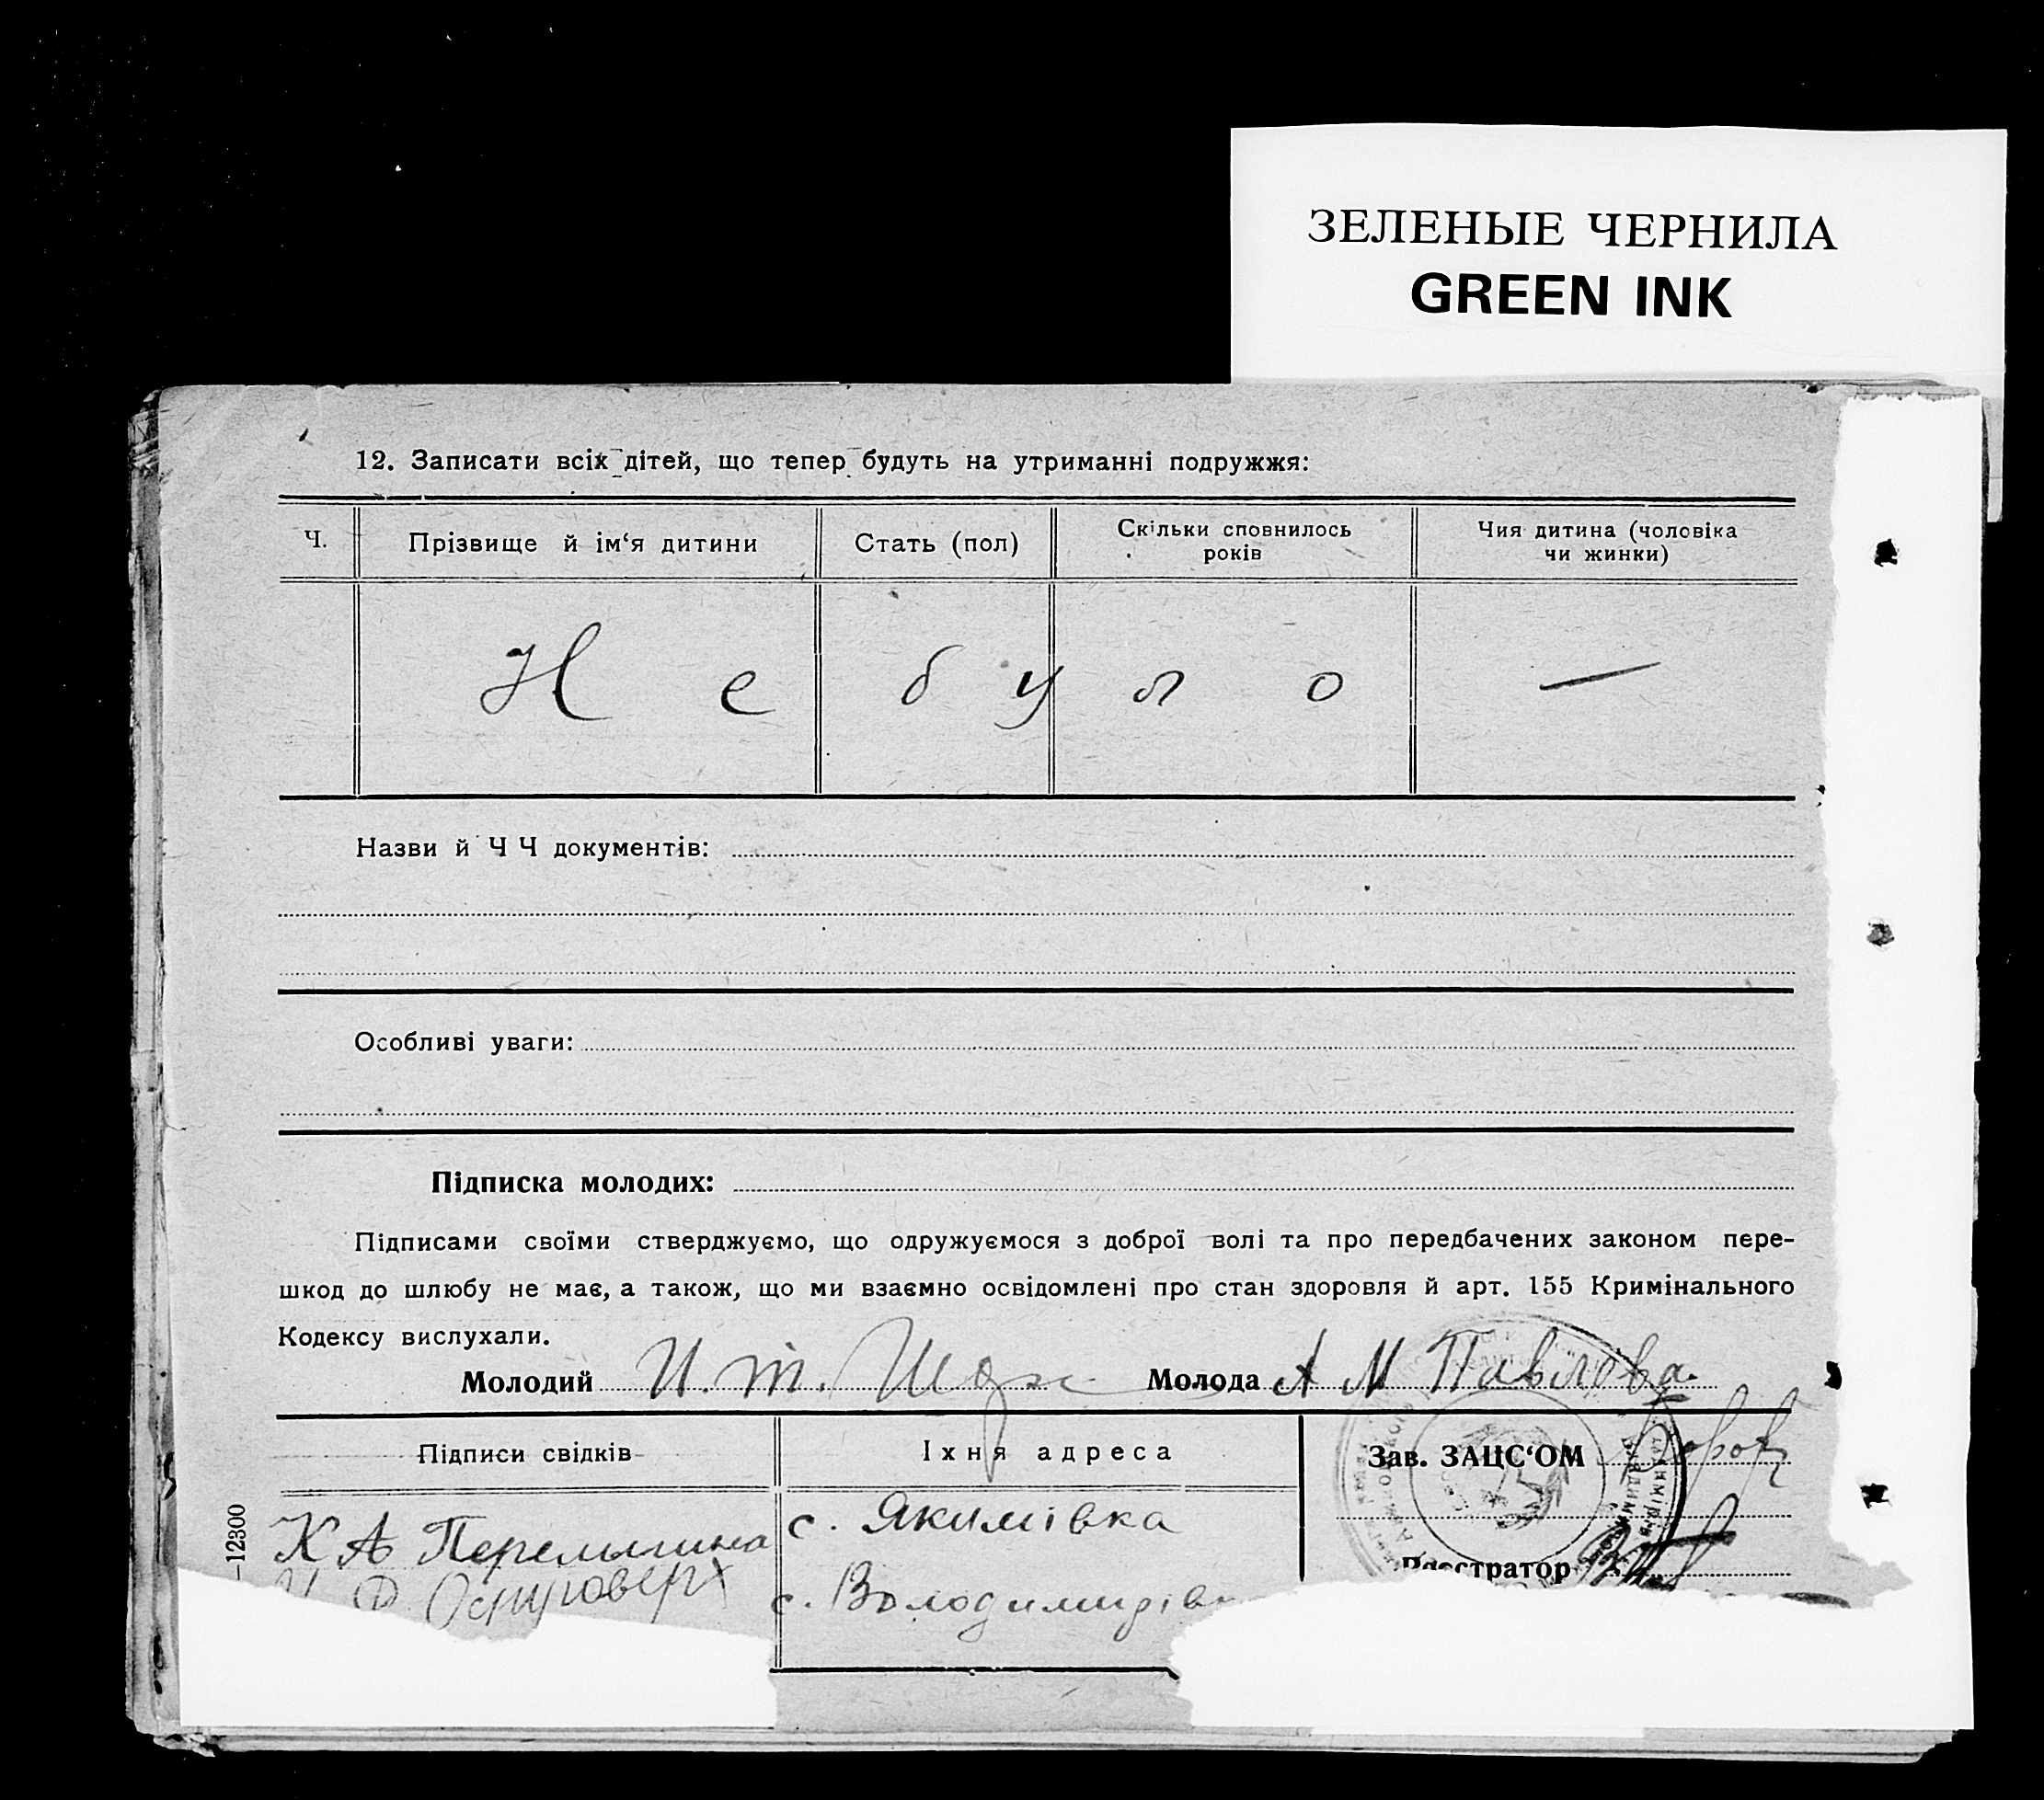 ЗЕЛЕНЫЕ ЧЕРНИЛА
GREEN INK
12. Записати всіх дітей, що тепер будуть на утриманні подружжя:
Ч. Прізвище й ім‘я дитини Стать (пол) Скільки сповнилось років Чия дитина (чоловіка чи жинки)
Не було —
Назви й ЧЧ документів:
Особливі уваги:
Підписка молодих:
Підписами своїми стверджуємо, що одружуємося з доброї волі та про передбачених законом пере-
шкод до шлюбу не має, а також, що ми взаємно освідомлені про стан здоровля й арт. 155 Кримінального
Кодексу вислухали.
Молодий И. т. Молода А М Павлова.
Підписи свідків Їхня адреса Зав. ЗАЦС‘ОМ
К А с. Якимівка
Реєстратор
с. Володимирівк
—12300